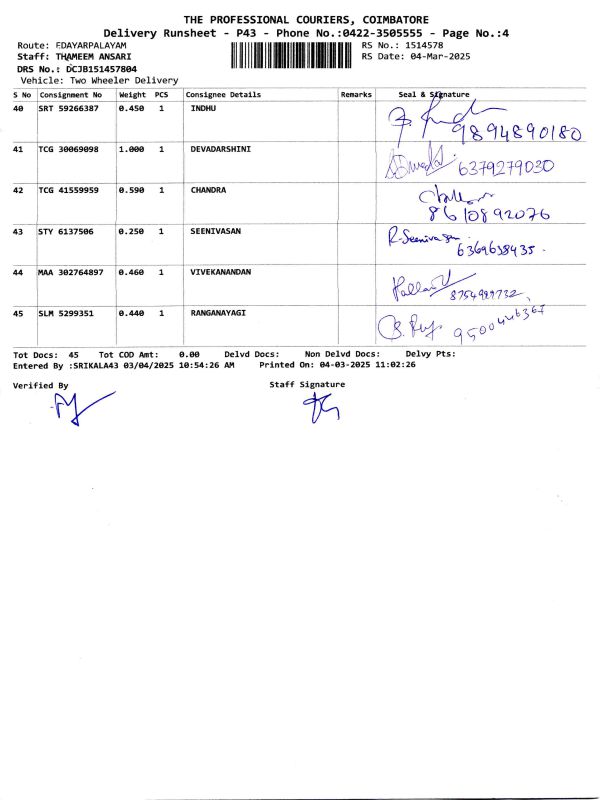 THE PROFESSIONAL COURIERS, COIMBATORE
Delivery Runsheet - P43 - Phone No.:0422-3505555 - Page No.:4
Route: EDAYARPALAYAM RS No.: 1514578
Staff: THAMEEM ANSARI RS Date: 04-Mar-2025
DRS No.: DCJB151457804
Vehicle: Two Wheeler Delivery
S No Consignment No Weight PCS Consignee Details Remarks Seal & Signature
40 SRT 59266387 0.450 1 INDHU
9894890180
41 TCG 30069098 1.000 1 DEVADARSHINI
6379279030
42 TCG 41559959 0.590 1 CHANDRA
8610892076
43 STY 6137506 0.250 1 SEENIVASAN R. Seenivasan
6369638435.
44 MAA 302764897 0.460 1 VIVEKANANDAN
45 SLM 5299351 0.440 1 RANGANAYAGI
9500446367
Tot Docs: 45 Tot COD Amt: 0.00 Delvd Docs: Non Delvd Docs: Delvy Pts:
Entered By :SRIKALA43 03/04/2025 10:54:26 AM Printed On: 04-03-2025 11:02:26
Verified By Staff Signature